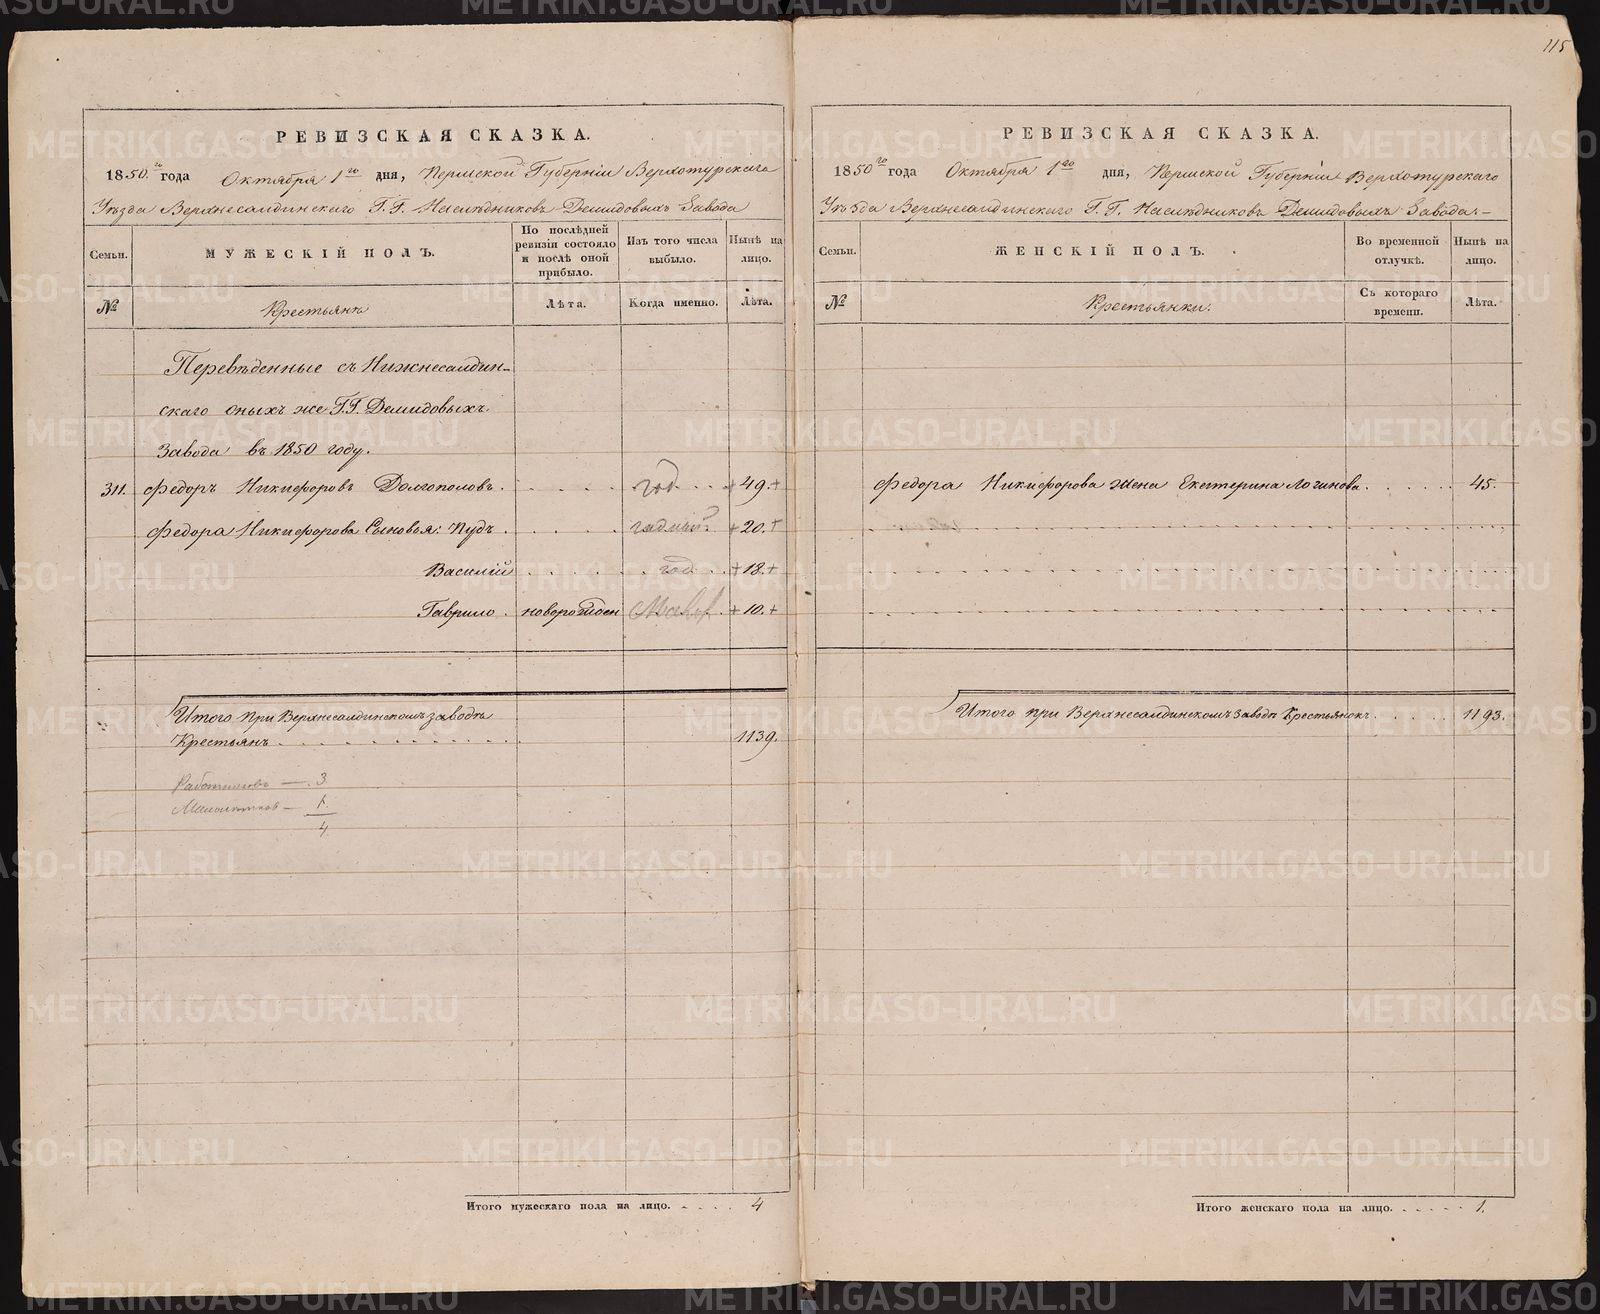 115
РЕВИЗСКАЯ СКАЗКА.
1850го года Октября 1го дня, Пермской Губерніи Верхотурскаго
Уѣзда Верхнесалдинскаго Г.Г. Наслѣдниковъ Демидовыхъ Завода
Семьи. МУЖЕСКІЙ ПОЛЪ. По послѣдней ревизіи состояло и послѣ оной прибыло. Изъ того числа выбыло. Нынѣ на лицо.
№ Крестьянъ Лѣта. Когда именно. Лѣта.
Переведенные съ Нижнесалдин-
скаго оныхъ же Г.Г. Демидовыхъ
Завода въ 1850 году.
311. Федоръ Никифоровъ Долгополовъ . . . . . год . . . +49.+
Федора Никифорова Сыновья: Пудъ . . . . . годный +20.+
Василій . . . . . год . . +18.+
Гаврило . новорожден +10.+
Итого при Верхнесалдинскомъ заводѣ
Крестьянъ . . . . . . . . . . . . 1139.
Работниковъ — 3
Малолѣтковъ — 1.
4
Итого мужескаго пола на лицо. . . . . 4
РЕВИЗСКАЯ СКАЗКА.
1850го года Октября 1го дня, Пермской Губерніи Верхотурскаго
Уѣзда Верхнесалдинскаго Г.Г. Наслѣдниковъ Демидовыхъ Завода.
Семьи. ЖЕНСКІЙ ПОЛЪ. Во временной отлучкѣ. Нынѣ на лицо.
№ Крестьянки. Съ котораго времени. Лѣта.
Федора Никифорова жена Екатерина Логинова . . . . . . 45.
Итого при Верхнесалдинскомъ заводѣ Крестьянокъ . . . . . 1193.
Итого женскаго пола на лицо. . . . . . 1.
METRIKI.GASO-URAL.RU